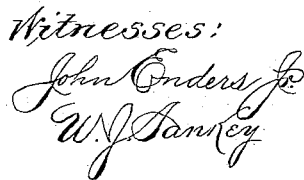 Witnesses:
John Enders Jr.
W. J. Sankey